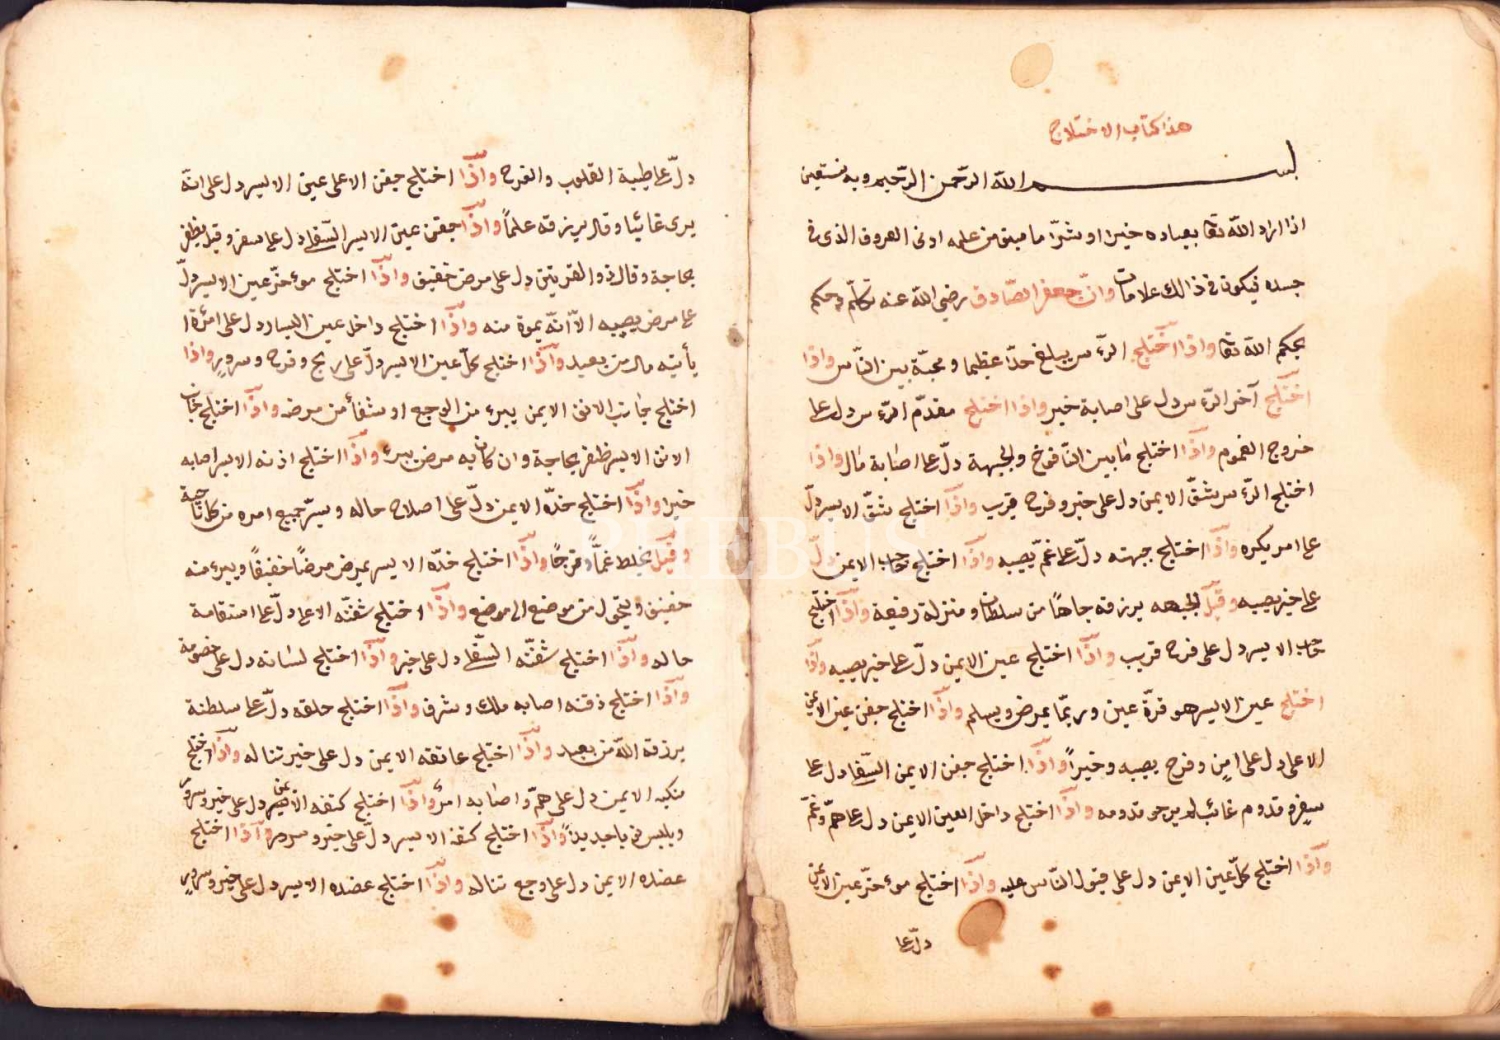 هذا كتاب الاختلاج
بسم الله الرّحمن الرّحيم وبه نستعين
اذا اراد الله تعا بعباده خيرا او شرّا ما مبنى من علمه اونى العروق الذى فى
جسده فيكون فى ذالك علامات وانّ جعفر الصّادق رضى الله عنه تكلّم وحكم
بحكم الله تعا واذا اختلج الرّءس يبلغ حدّا عظيما ومحبّة بين النّاس واذا
اختلج آخر الرّءس دل على اصابة خير واذا اختلج مقدّم الرّءس دل على
خروج الغموم واذا اختلج مابين اليّافوخ والجبهة دلّ على اصابة مال واذا
اختلج الرّءس شقّ الايمن دل على خير وفرح قريب واذا اختلج شقّ الايسر دلّ
على امر يكره واذا اختلج جبهته دلّ على غمّ يصيبه واذا اختلج حاجب الايمن دلّ
على خير يصيبه وقيل الجبهه يرزقه جاها من سلطان ومنزلة رفيعة واذا اختلج
حاجب الايسر دل على فرح قريب واذا اختلج عين الايمن دلّ على خير يصيبه واذا
اختلج عين الايسر هو قرّة عين وربمّا يمرض ويسلم واذا اختلج جفن عين الايمن
الاعلى دل على امن وفرح يصيبه وخيراً واذا اختلج جفن الايمن السّفلا دل على
سفره قدوم غائب لم يرجو قدومه واذا اختلج داخل العين الايمن دل على همّ وغمّ
واذا اختلج كلّ عين الايمن دل على قبول النّاس عليه واذا اختلج موءخّر عين الايمن
دلّ على
دلّ على طيبة القلوب والفرح واذا اختلج جفن الاعلى عين الايسر دل على انّه
يرى غائبا وقال يرزقه علماً واذا جفن عين الايسر السّفلا دل على سفر وقيل يظفر
بحاجة وقال ذو القرنين دل على مرض خفيف واذا اختلج موءخّر عين الايسر دلّ
على مرض يصيبه الاّ انّه يموة منه واذا اختلج داخل عين اليسار دل على امرأة ا
يأتيه مال من بعيد واذا اختلج كلّ عين الايسر دلّ على ربح وفرح وسرور واذا
اختلج جانب الانف الايمن يبرء من الوجع او شفأ من مرض واذا اختلج جانب
الانف الايسر ظفر بحاجة وان كان به مرض يبرء واذا اختلج اذنه الايسر اصابه
خيرا واذا اختلج خدّه الايمن دلّ على اصلاح حاله ويسّر جميع امره من كل ناحية
وقيل يخلط غمّاً وفرحًا واذا اختلج خدّه الايسر يمرض مرضًا خفيفًا ويبرء منه
خفيف ويتحول من موضع الى موضع واذا اختلج شفتّه الاعلا دلّ على استقامة
حاله واذا اختلج شفتّه السّفلا دل على خير واذا اختلج لسانه دل على خصومة
واذا اختلج ذقنه اصابه ملك وشرف واذا اختلج حلقه دلّ على سلطنة
يرزقه الله من بعيد واذا اختلج عاتقه الايمن دل على خير تناله واذا اختلج
منكبه الايمن دل على همّ واصابه امرٌ واذا اختلج كتفه الايمن دل على خير وسرور
ويلبس ثيابا جديداً واذا اختلج كتفه الايسر دلّ على خير وسرور واذا اختلج
عضده الايمن دل على وجع تناله واذا اختلج عضده الايسر دل على خير وسرور
PHEBUS